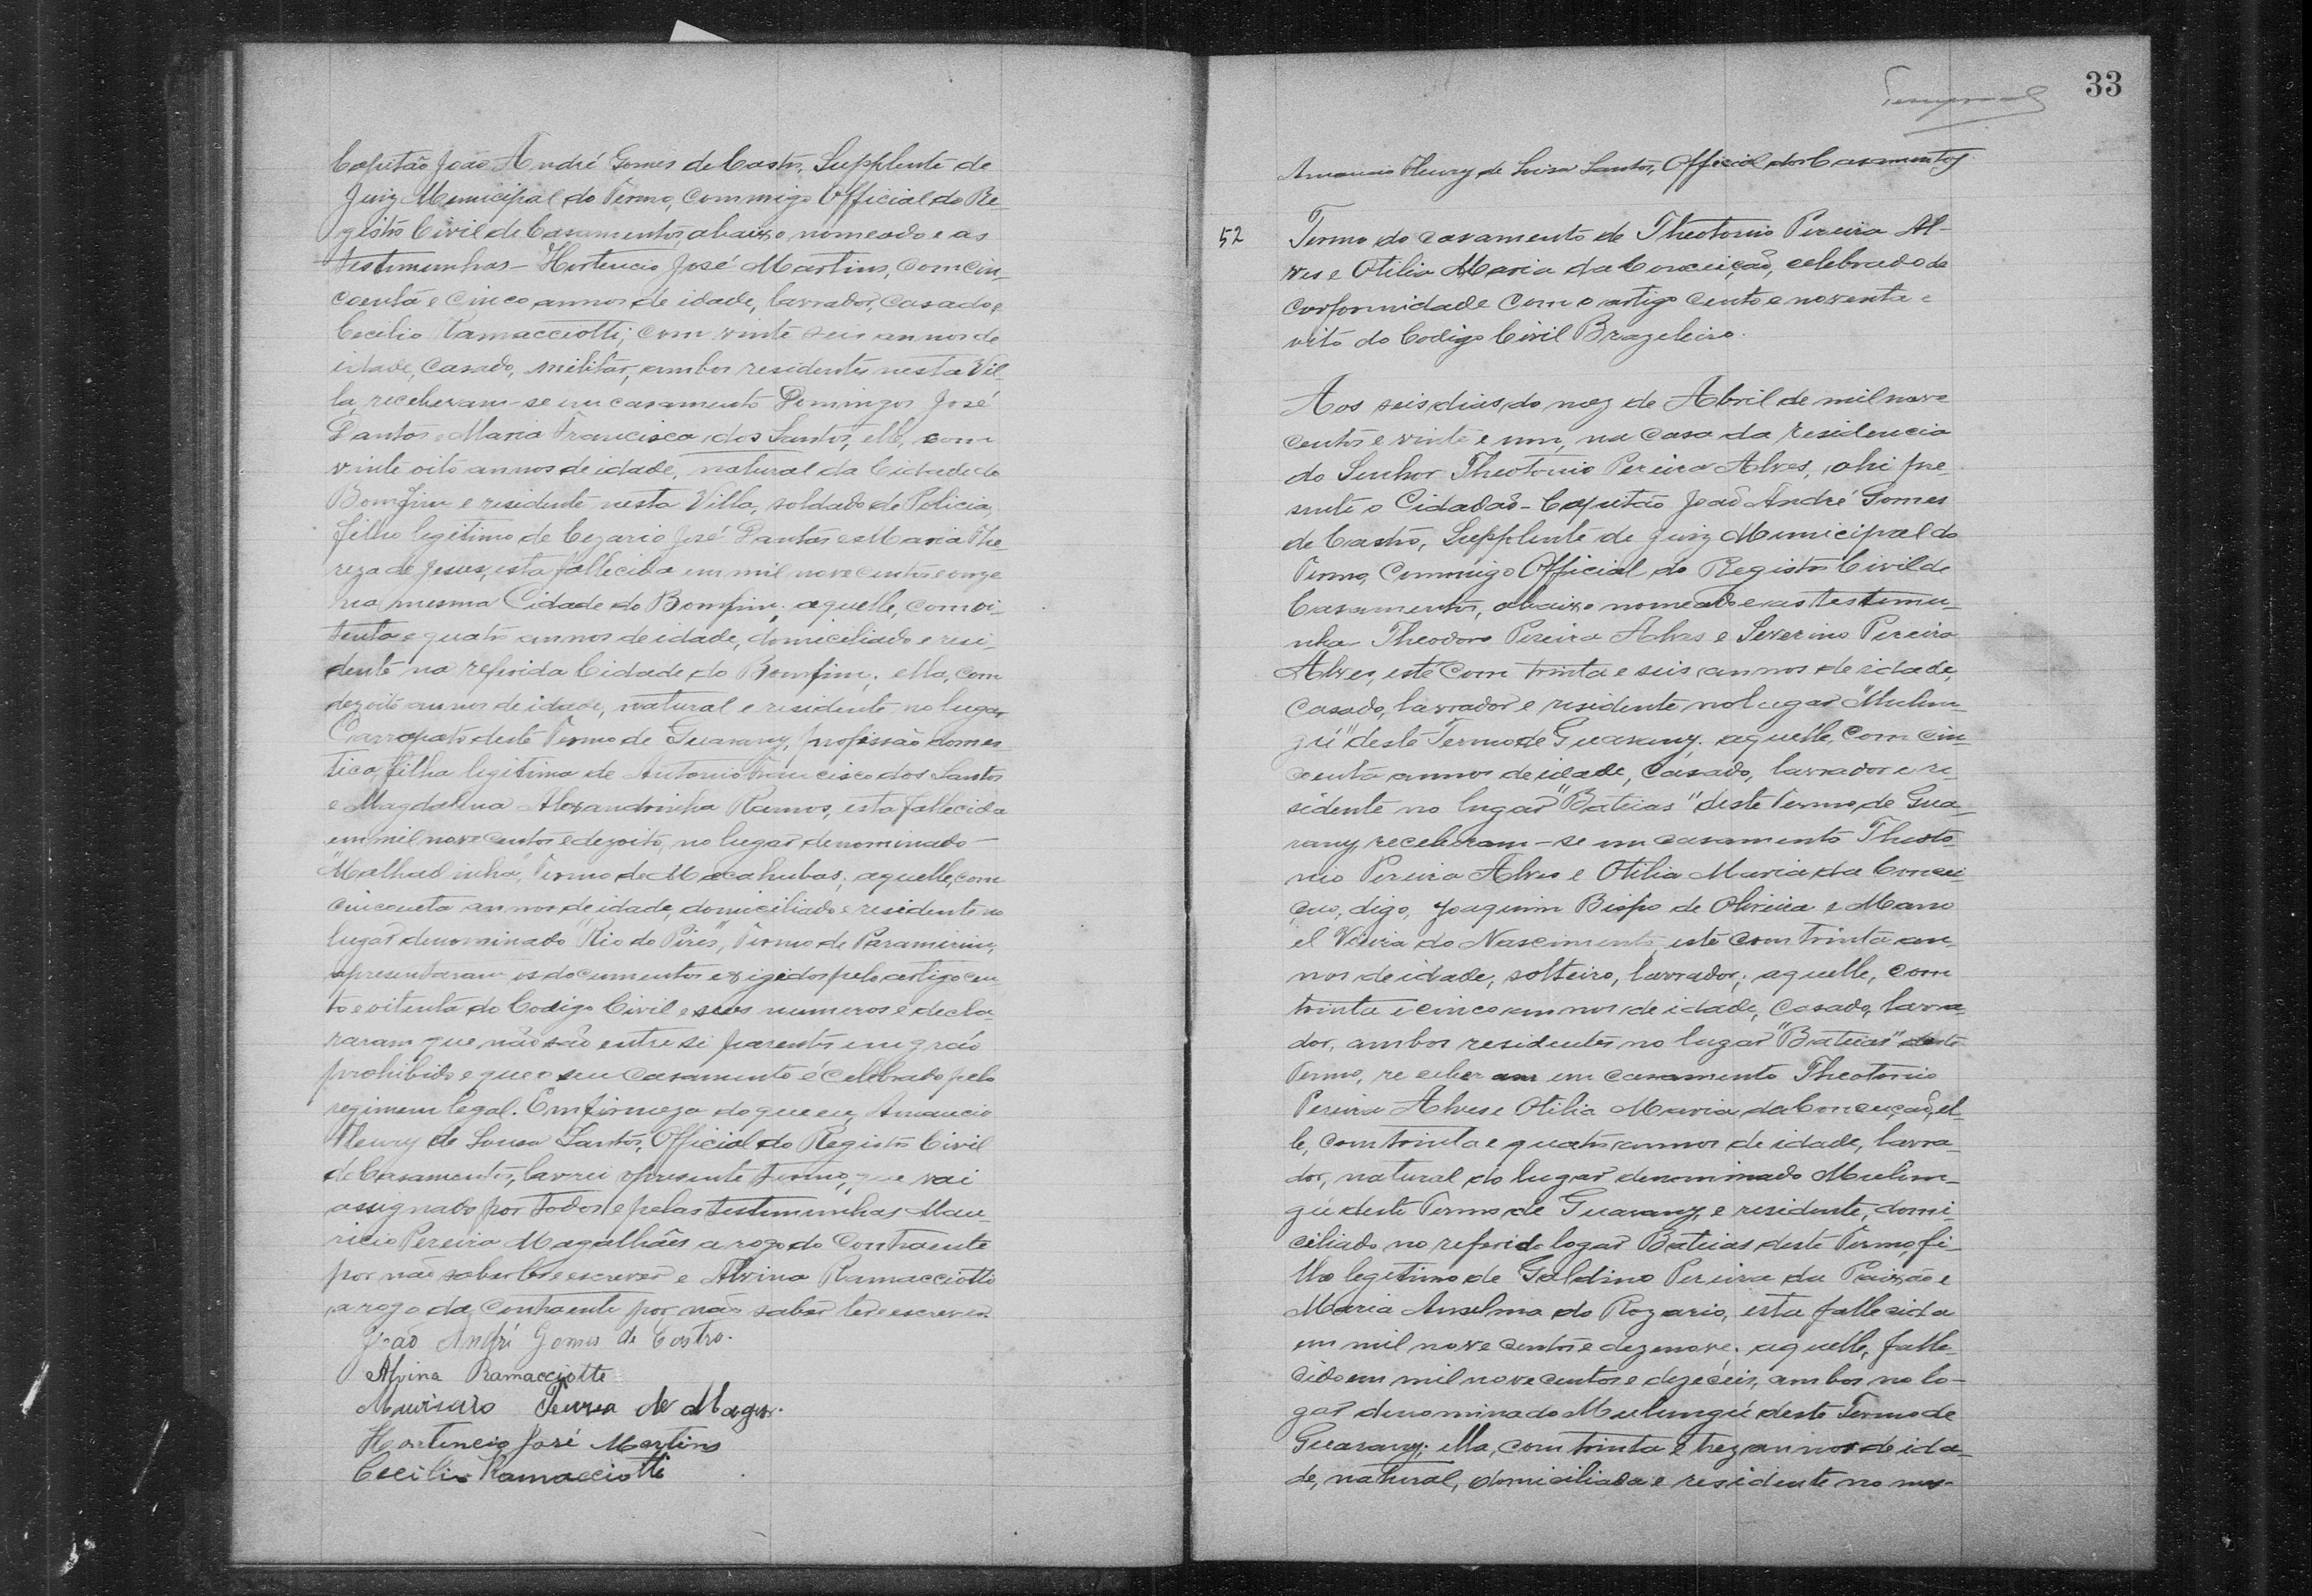 Capitão João André Gomes de Castro, Supplente de
Juiz Municipal do Termo, commigo Official do Re-
gistro Civil de Casamentos, abaixo nomeado e as
testemunhas - Hortencio José Martins, com cin-
coenta e cinco annos de idade, lavrador, casado e
Cecilio Ramacciotti; com vinte seis annos de
idade, casado, militar, ambos residentes nesta Vil-
la, receberam-se em casamento Domingos José
Dantas e Maria Francisca dos Santos, elle, com
vinte oito annos de idade, natural da Cidade do
Bomfim e residente nesta Villa, soldado de Policia,
filho legitimo de Cezario José Dantas e Maria The-
reza de Jesus, esta fallecida em mil nove centos e onze
na mesma Cidade do Bomfim; aquelle, com oi-
tenta e quatro annos de idade, domiciliado e resi-
dente na referida Cidade do Bomfim; ella, com
dezoito annos de idade, natural e residente no lugar
Carrapato deste Termo de Guarany, profissão domes-
tica, filha legitima de Antonio Francisco dos Santos
e Magdalena Alexandrinha Ramos, esta fallecida
em mil nove centos e dezoito, no lugar denominado -
"Malhadinha", Termo de Macahubas; aquelle, com
cincoenta annos de idade, domiciliado e residente no
lugar denominado "Rio do Pires", Termo de Paramirim,
apresentaram os documentos exigidos pelo artigo cen-
to e oitenta do Codigo Civil e seus numeros e decla-
raram que não são entre si parentes em gráo
prohibido e que o seu casamento é celebrado pelo
regimem legal. Em firmeza do que eu, Amancio
Fleury de Sousa Santos, Official do Registro Civil
de Casamentos, lavrei o presente termo, que vai
assignado por todos e pelas testemunhas Mau-
ricio Pereira Magalhães a rogo do Contraente
por não saber ler e escrever e Alvina Ramacciotti
a rogo da contraente por não saber ler e escrever.
João André Gomes de Castro.
Alvina Ramacciotte
Mauricio Pereira de Magas.
Hortencio José Martins
Cecilio Ramacciotti
33
Amancio Fleury de Souza Santos, Official dos Casamentos
52
Termo do casamento de Theotonio Pereira Al-
ves e Otilia Maria da Conceição, celebrado de
conformidade com o artigo cento e noventa e
oito do Codigo Civil Brazeleiro.
Aos seis dias do mez de Abril de mil nove
centos e vinte e um, na casa da residencia
do Senhor Theotonio Pereira Alves, ahi pre-
sente o Cidadão - Capitão João André Gomes
de Castro, Supplente de Juiz Municipal do
Termo, Commigo Official do Registro Civil de
Casamentos, abaixo nomeado e as testemu-
nha Theodoro Pereira Alves e Severino Pereira
Alves, este com trinta e seis annos de idade,
casado, lavrador e residente no lugar "Mulun-
gú" deste Termo de Guarany; aquelle, com cin-
coenta annos de idade, casado, lavrador e re-
sidente no lugar "Bateias" deste Termo de Gua-
rany, receberam-se em casamento Theoto-
nio Pereira Alves e Otilia Maria da Concei-
ção, digo, Joaquim Bispo de Oliveira e Mano-
el Vieira do Nascimento, este com trinta an-
nos de idade, solteiro, lavrador; aquelle, com
trinta e cinco annos de idade, casado, lavra-
dor, ambos residentes no lugar "Bateias" deste
Termo, receberam em casamento Theotonio
Pereira Alves e Otilia Maria da Conceição, el-
le, com trinta e quatro annos de idade, lavra-
dor, natural do lugar denominado Mulun-
gú deste Termo de Guarany, e residente, domi-
ciliado no referido logar Bateias deste Termo, fi-
lho legitimo de Galdino Pereira da Paixão e
Maria Anselma do Rozario, esta fallecida
em mil nove centos e dezenove; aquelle, falle-
cido em mil nove centos e dezeceis, ambos no lo-
gar denominado Mulungú deste Termo de
Guarany; ella, com trinta e trez annos de ida-
de, natural, domiciliada e residente no mes-